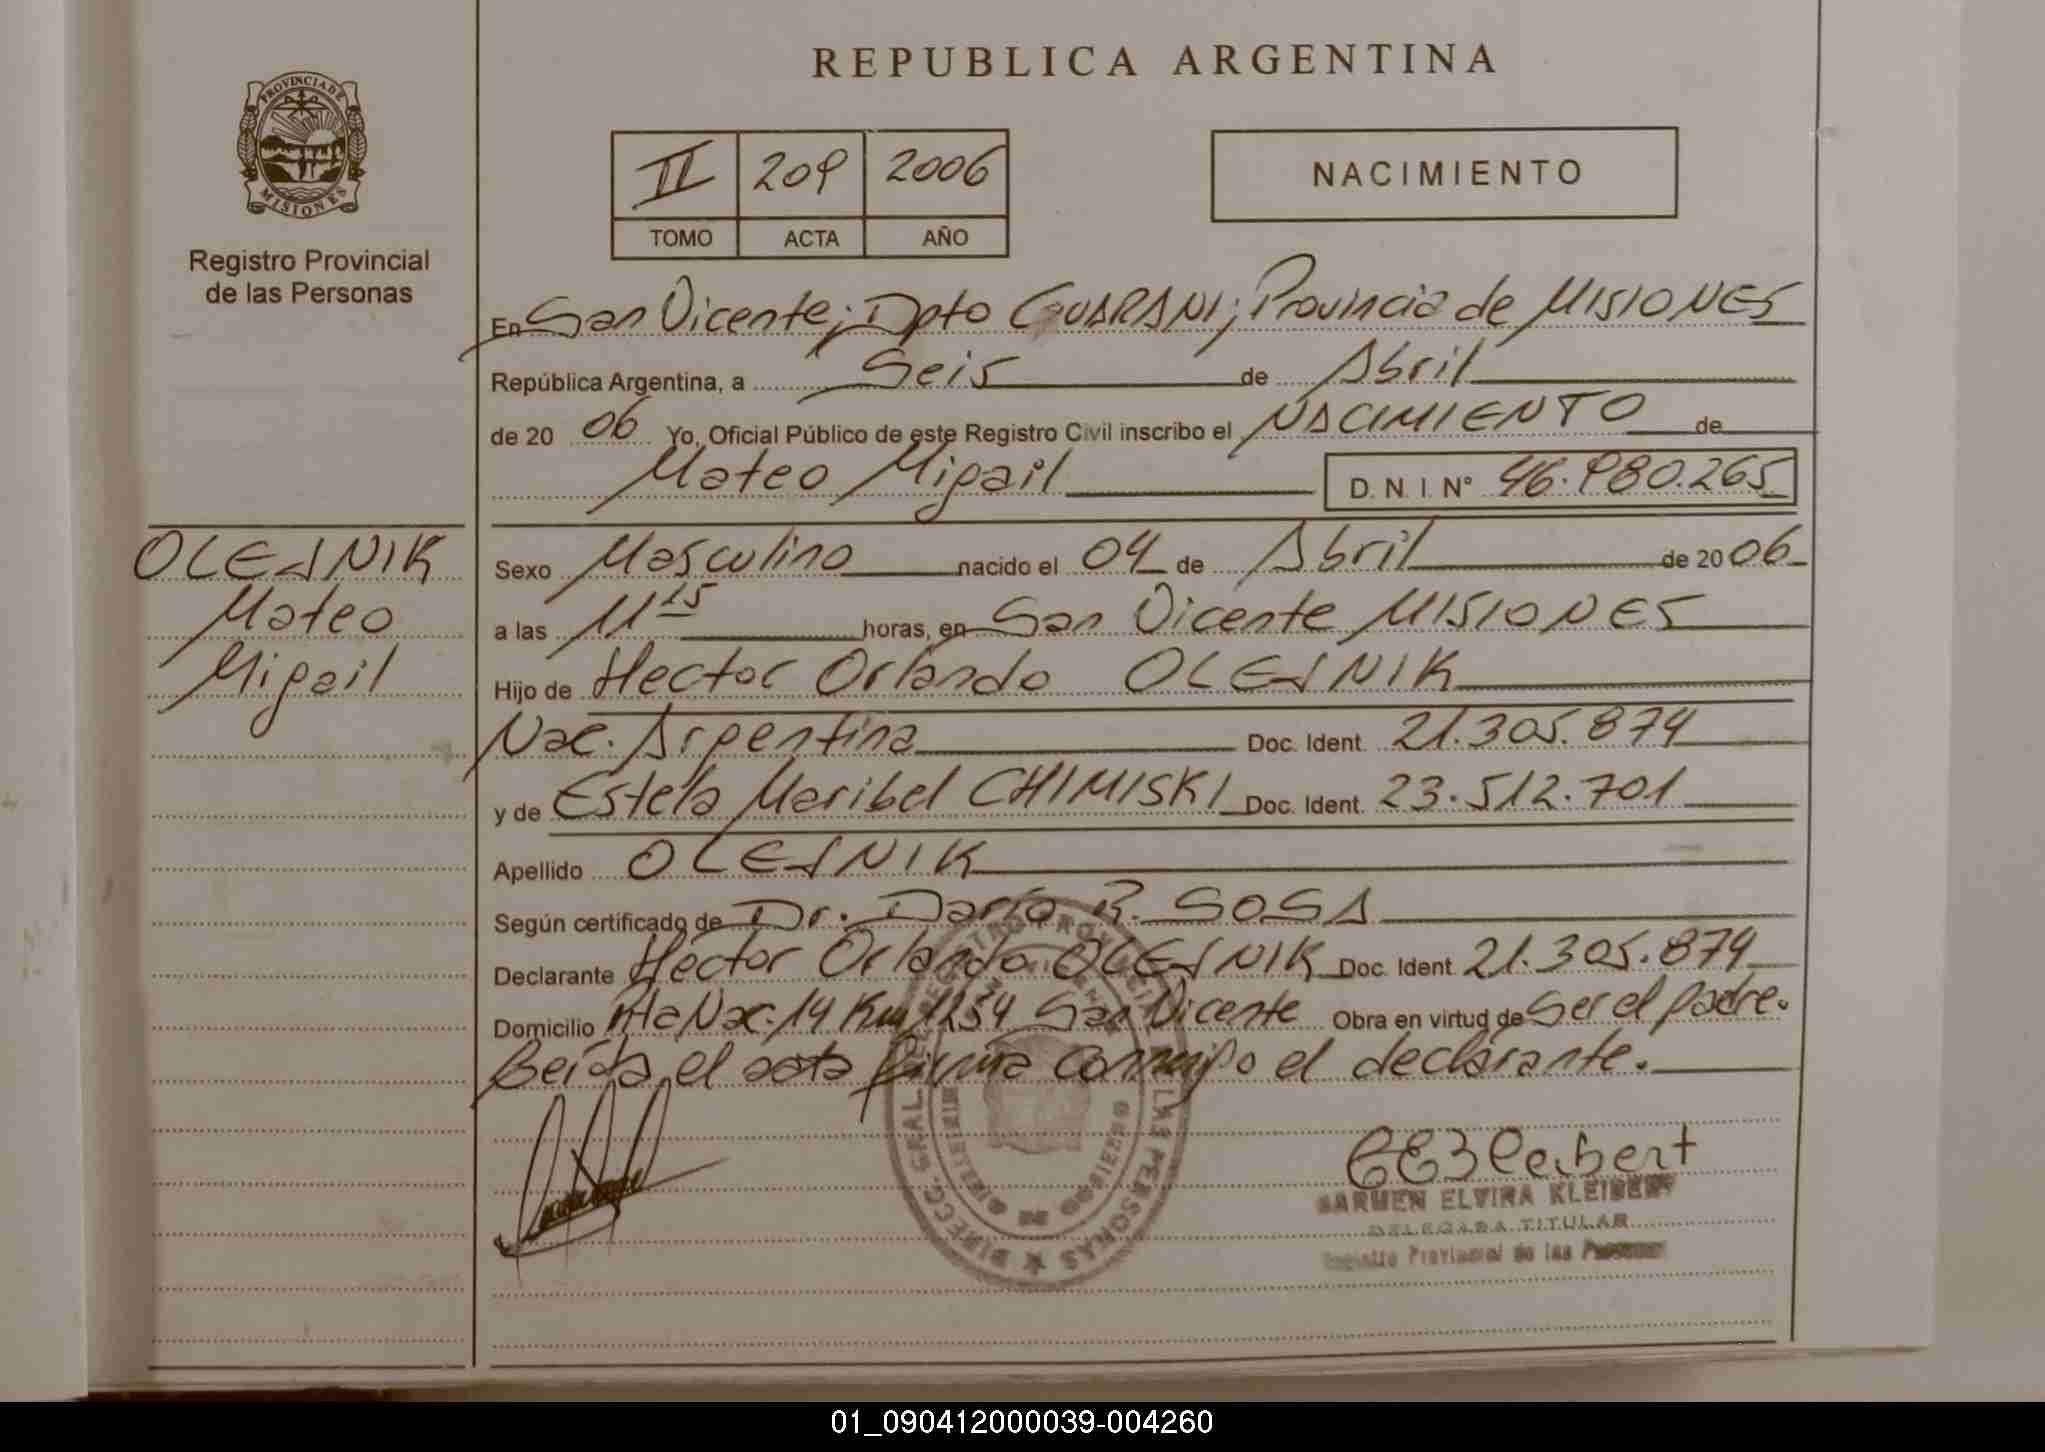 REPUBLICA ARGENTINA
PROVINCIA DE
MISIONES
Registro Provincial
de las Personas
II 209 2006
TOMO ACTA AÑO
NACIMIENTO
En San Vicente; Dpto GUARANI; Provincia de MISIONES
República Argentina, a Seis de Abril
de 20 06 Yo, Oficial Público de este Registro Civil inscribo el NACIMIENTO de
Mateo Migail D. N. I. N° 46.980.265
OLEJNIK
Mateo
Migail
Sexo Masculino nacido el 04 de Abril de 20 06
a las 11 15 horas, en San Vicente MISIONES
Hijo de Hector Orlando OLEJNIK
Nac. Argentina Doc. Ident. 21.305.874
y de Estela Maribel CHIMISKI Doc. Ident. 23.512.701
Apellido OLEJNIK
Según certificado de Dr. Darío R. SOSA
Declarante Hector Orlando OLEJNIK Doc. Ident 21.305.874
Domicilio Rta Nac. 14 Km 1254 San Vicente Obra en virtud de Ser el padre.
Leída el acta firma conmigo el declarante.
DIREC. GRAL. REGISTRO PROVINCIAL DE LAS PERSONAS
MINISTERIO DE GOBIERNO
CEKleibert
CARMEN ELVIRA KLEIBERT
DELEGADA TITULAR
Registro Provincial de las Personas
01_090412000039-004260